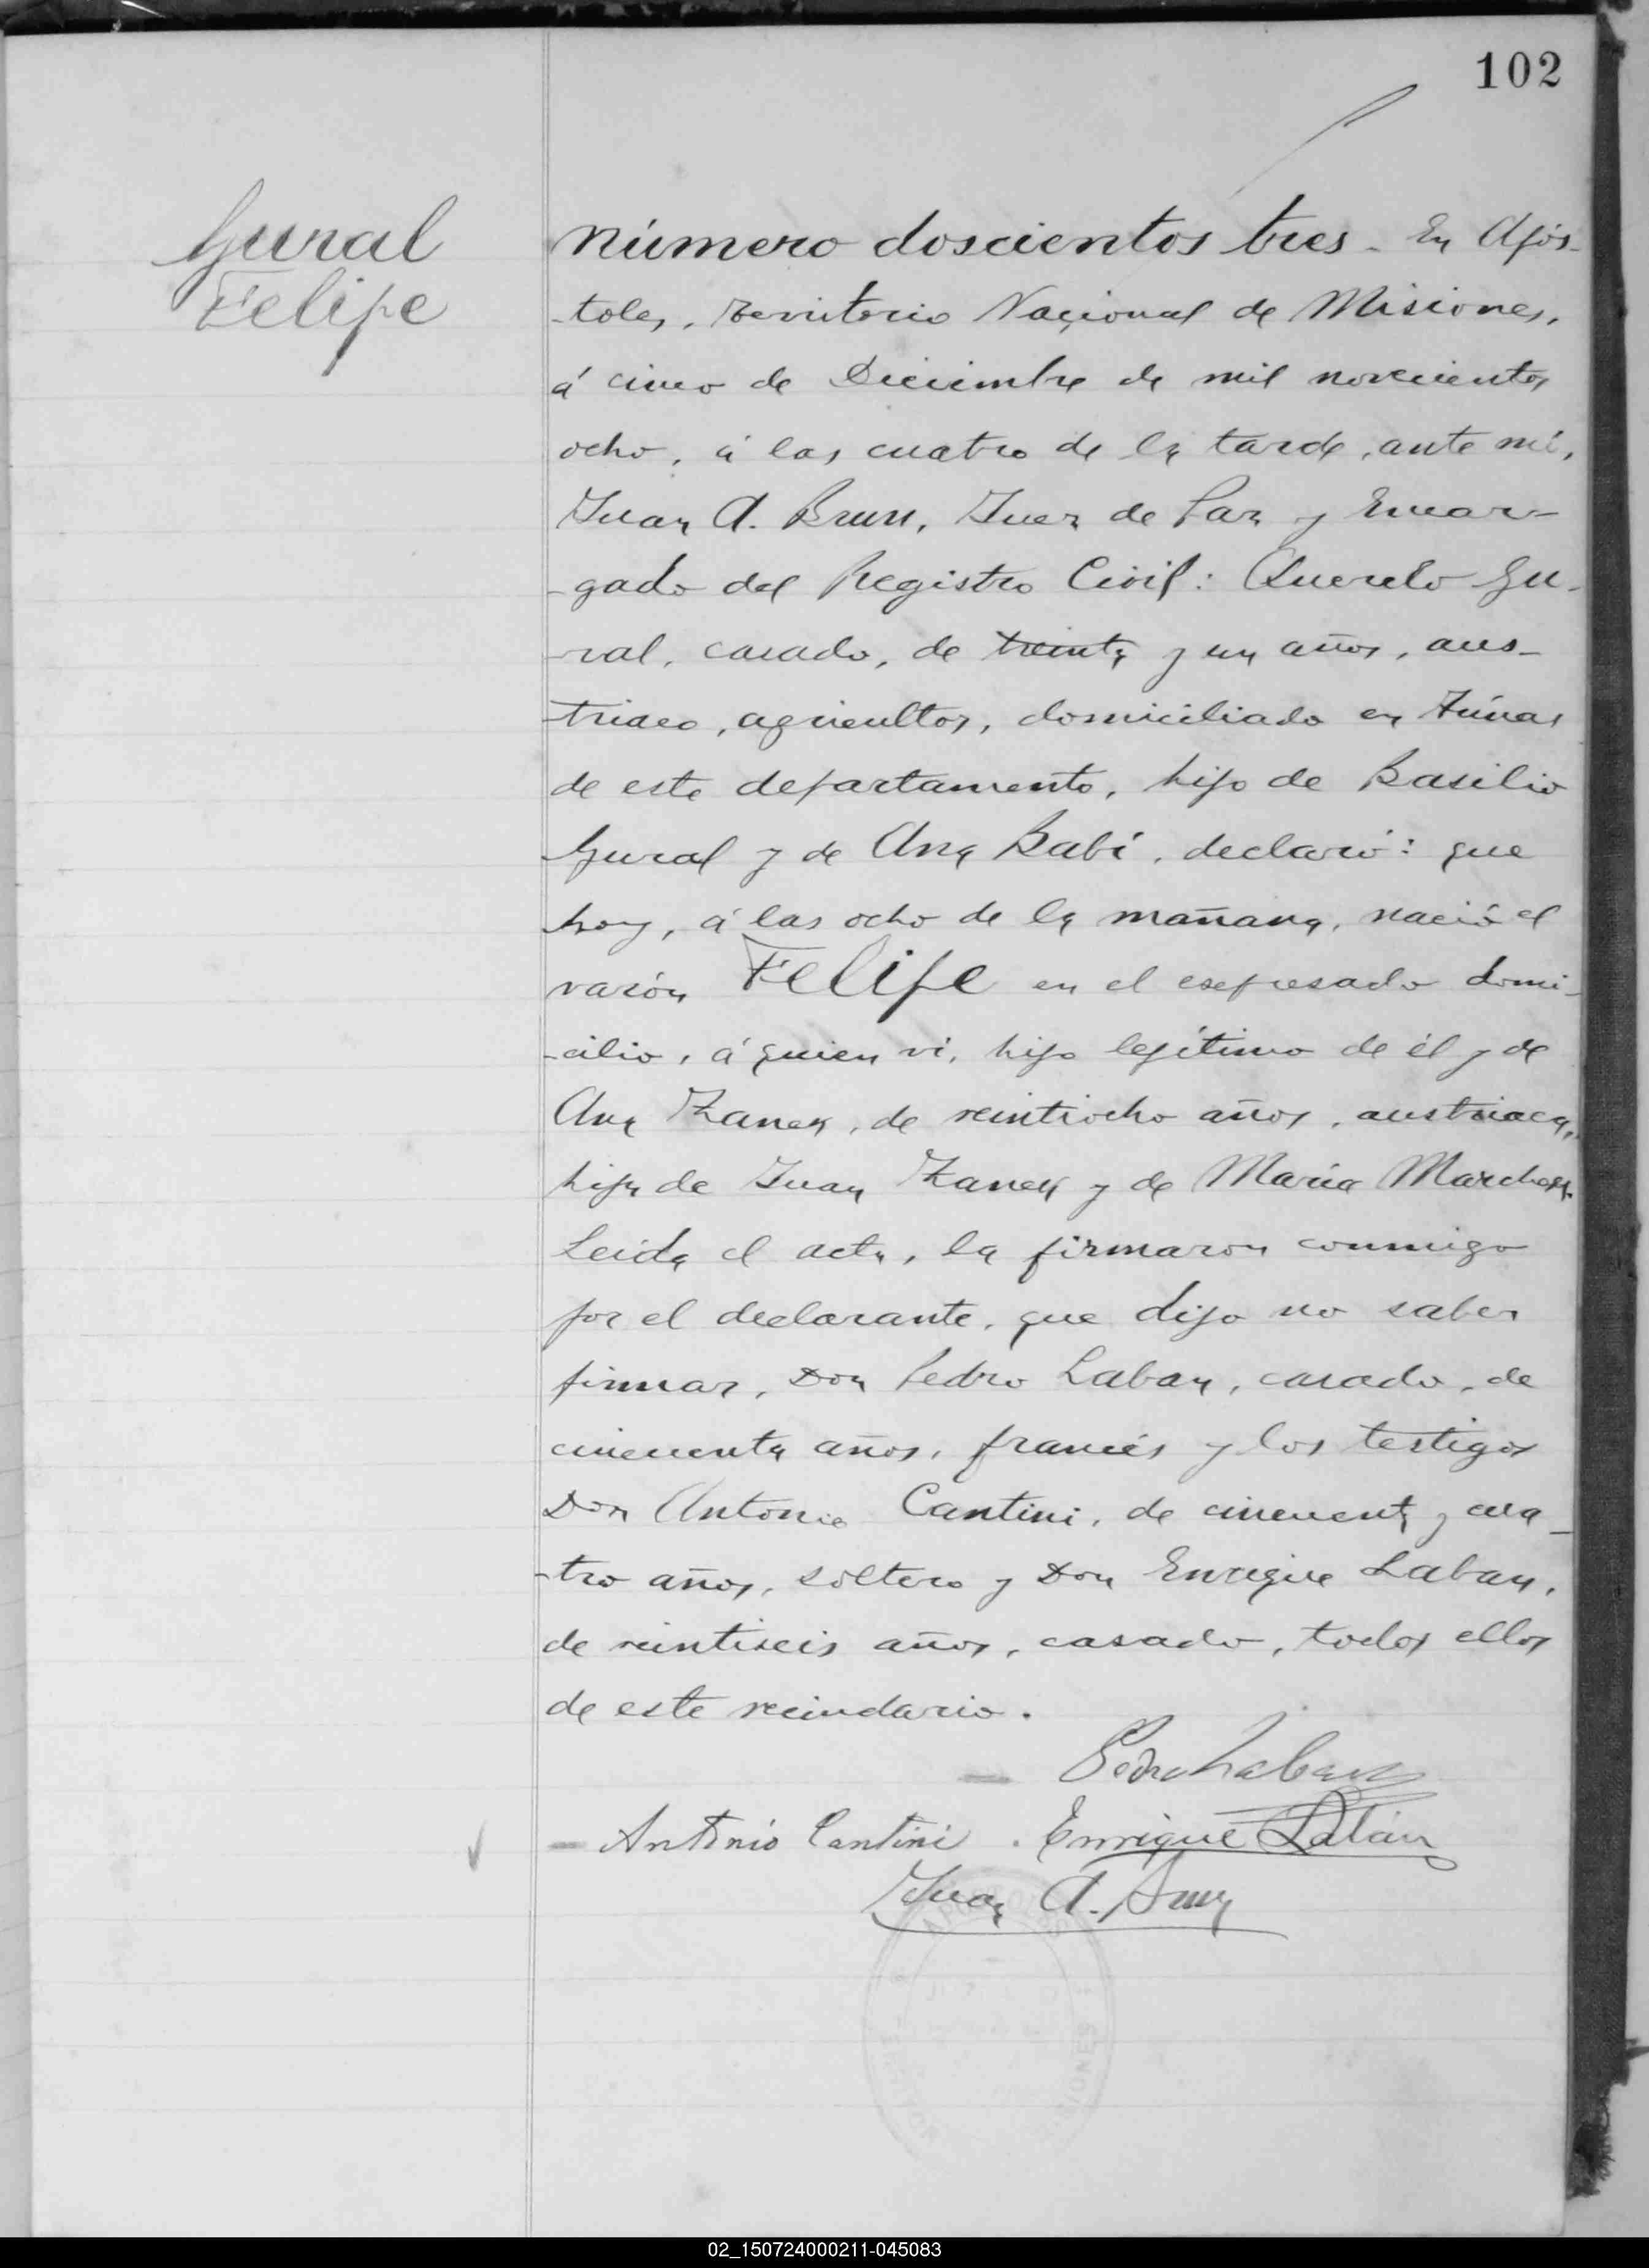 102
Gural
Felipe
Número doscientos tres - En Após-
-toles, Territorio Nacional de Misiones,
á cinco de Diciembre de mil novecientos
ocho, á las cuatro de la tarde, ante mí,
Juan A. Brun, Juez de Paz y Encar-
-gado del Registro Civil: Gu-
-ral, casado, de treinta y un años, aus-
-triaco, agricultor, domiciliado en Túnas
de este departamento, hijo de Basilio
Gural y de Ana Babí, declaró: que
hoy, á las ocho de la mañana, nació el
varón Felipe en el expresado domi-
-cilio, á quien ví, hijo legítimo de él y de
Ana, de veintiocho años, austriaca,
hija de Juan y de María
Leida el acta, la firmaron conmigo
por el declarante, que dijo no saber
firmar, Don Pedro Laban, casado, de
cincuenta años, francés y los testigos
Don Antonio Cantini, de cincuenta y cua-
-tro años, soltero y Don Enrique Laban,
de veintiseis años, casado, todos ellos
de este vecindario.
Pedro Laban
- Antonio Cantini . Enrique Labán
Juan A. Brun
02_150724000211-045083